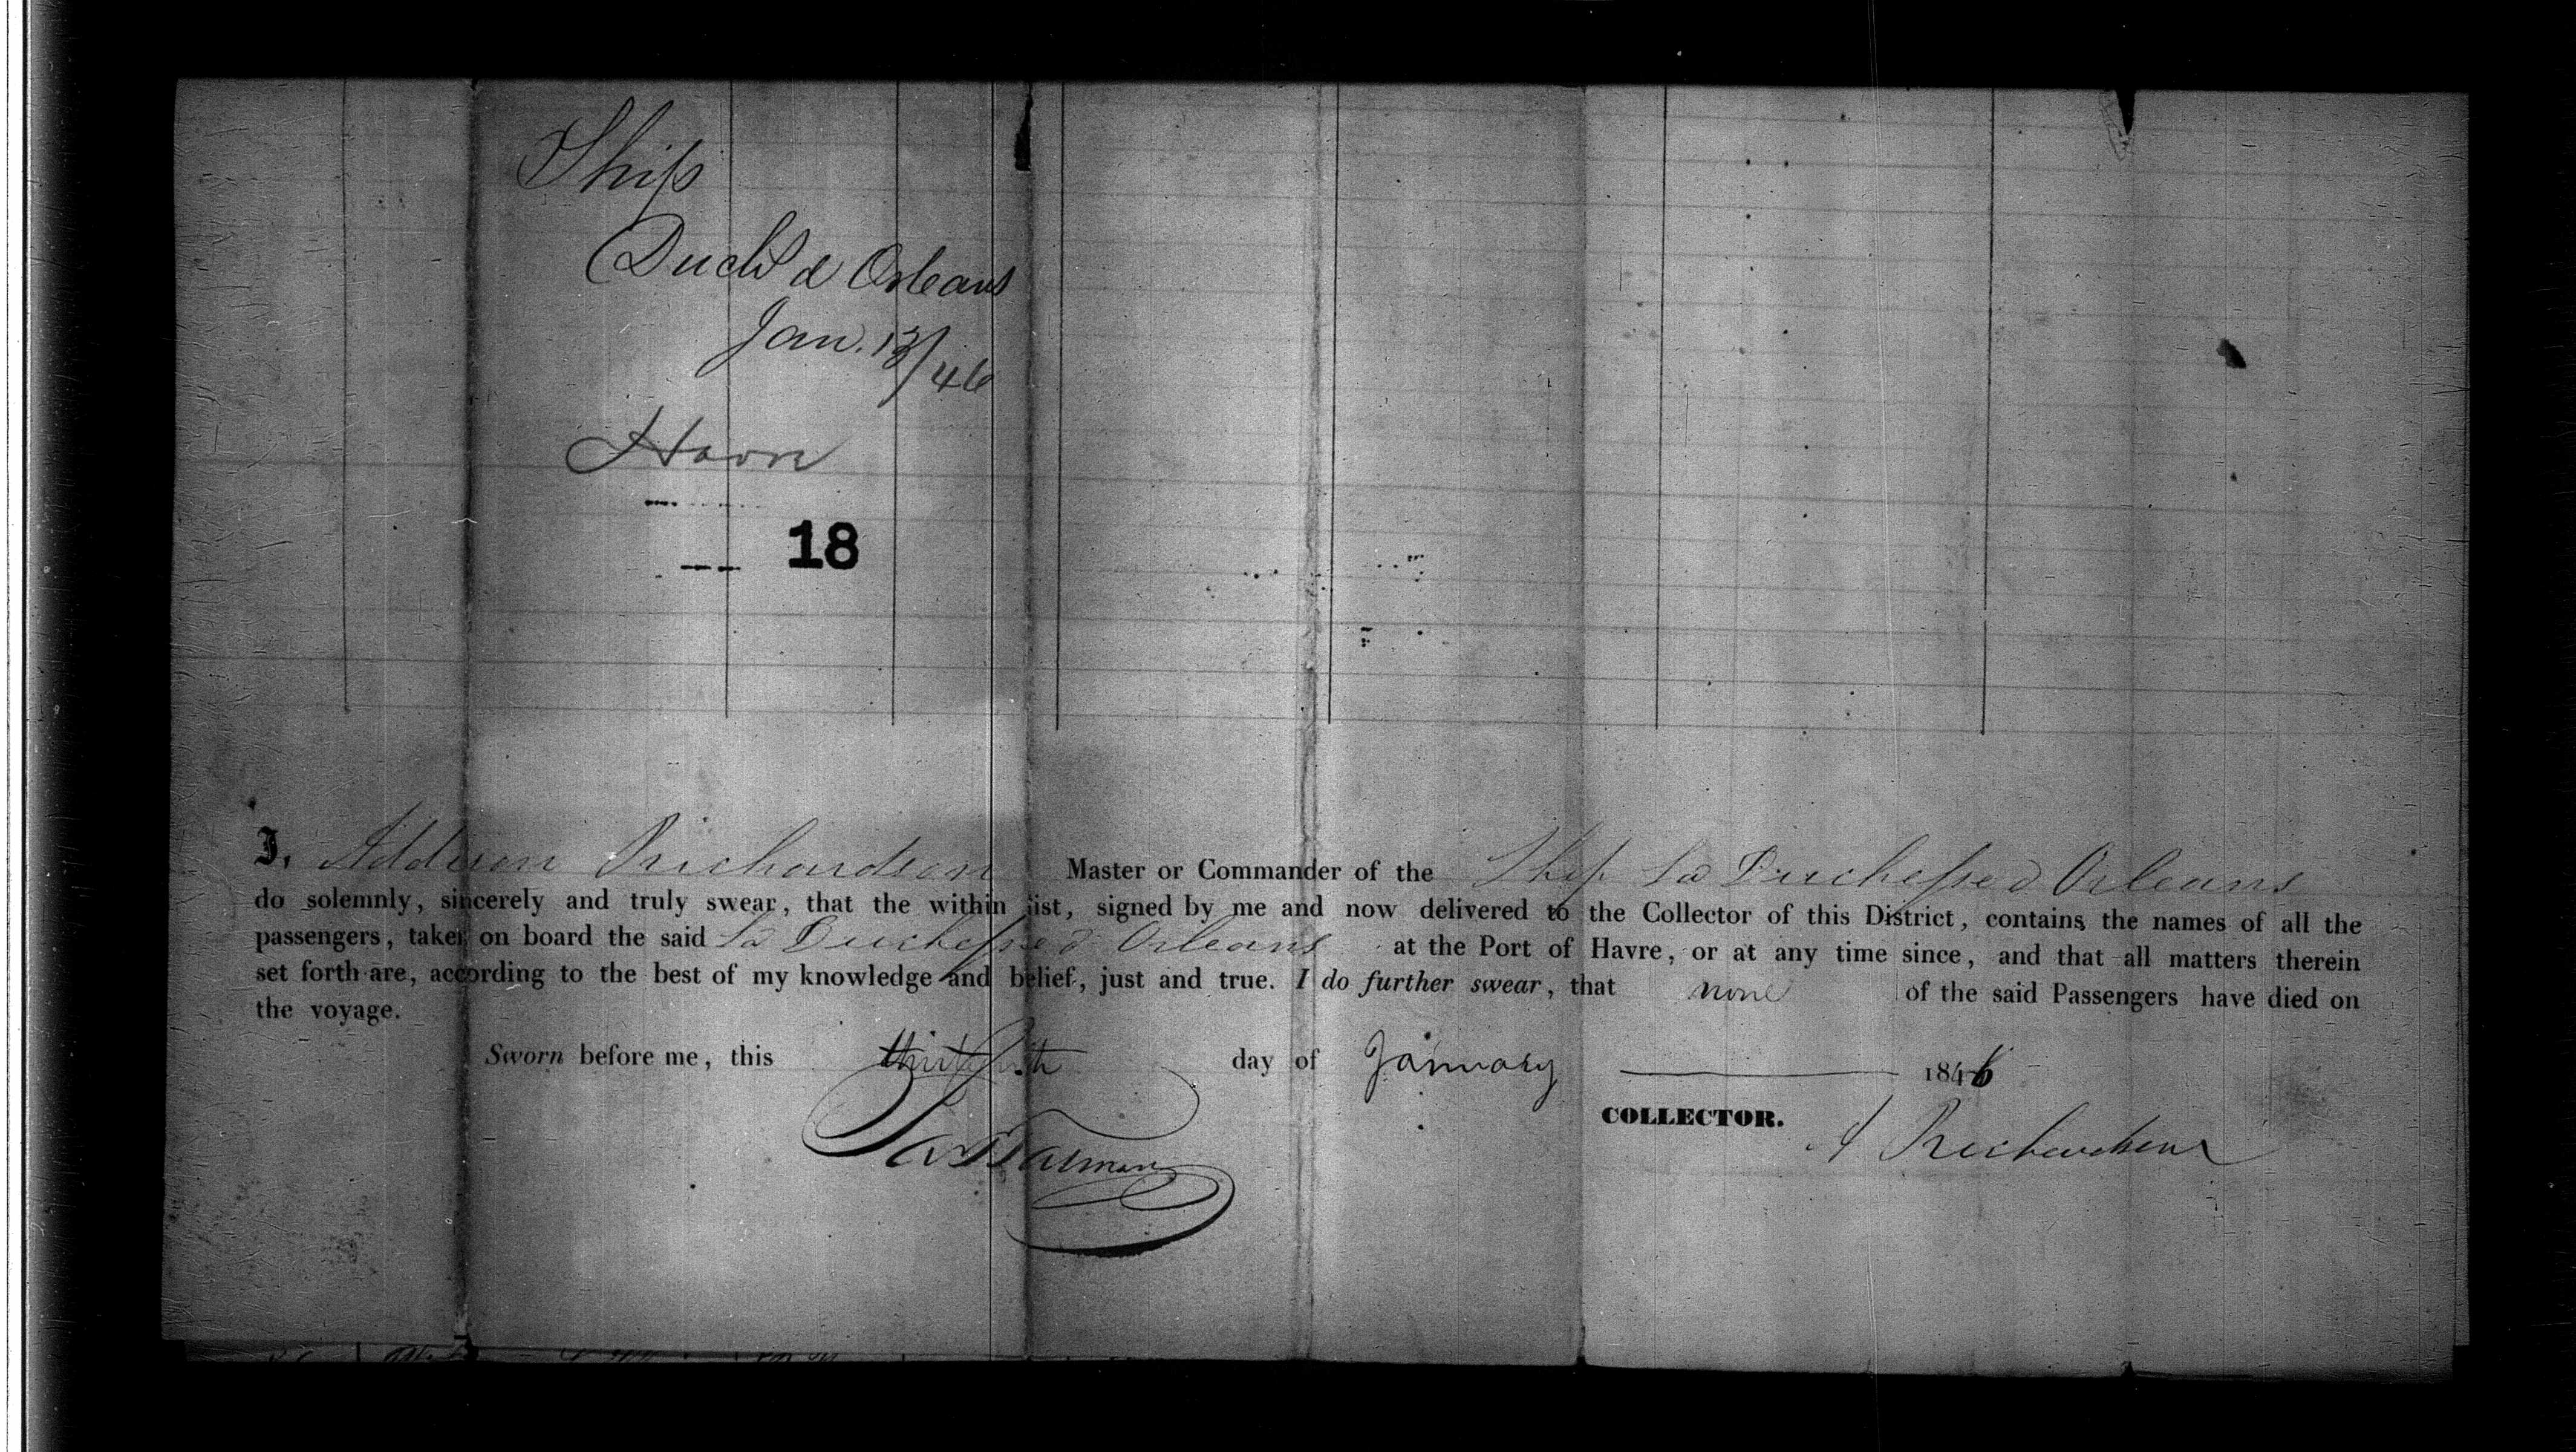 Ship
Duchs d Orleans
Jan. 13/46
Havre
18
I, Addison Richardson Master or Commander of the Ship La Duchesse d Orleans
do solemnly, sincerely and truly swear, that the within list, signed by me and now delivered to the Collector of this District, contains the names of all the
passengers, taken on board the said La Duchesse d Orleans at the Port of Havre, or at any time since, and that all matters therein
set forth are, according to the best of my knowledge and belief, just and true. I do further swear, that none of the said Passengers have died on
the voyage.
Sworn before me, this day of January 1846
COLLECTOR.
A Richardson